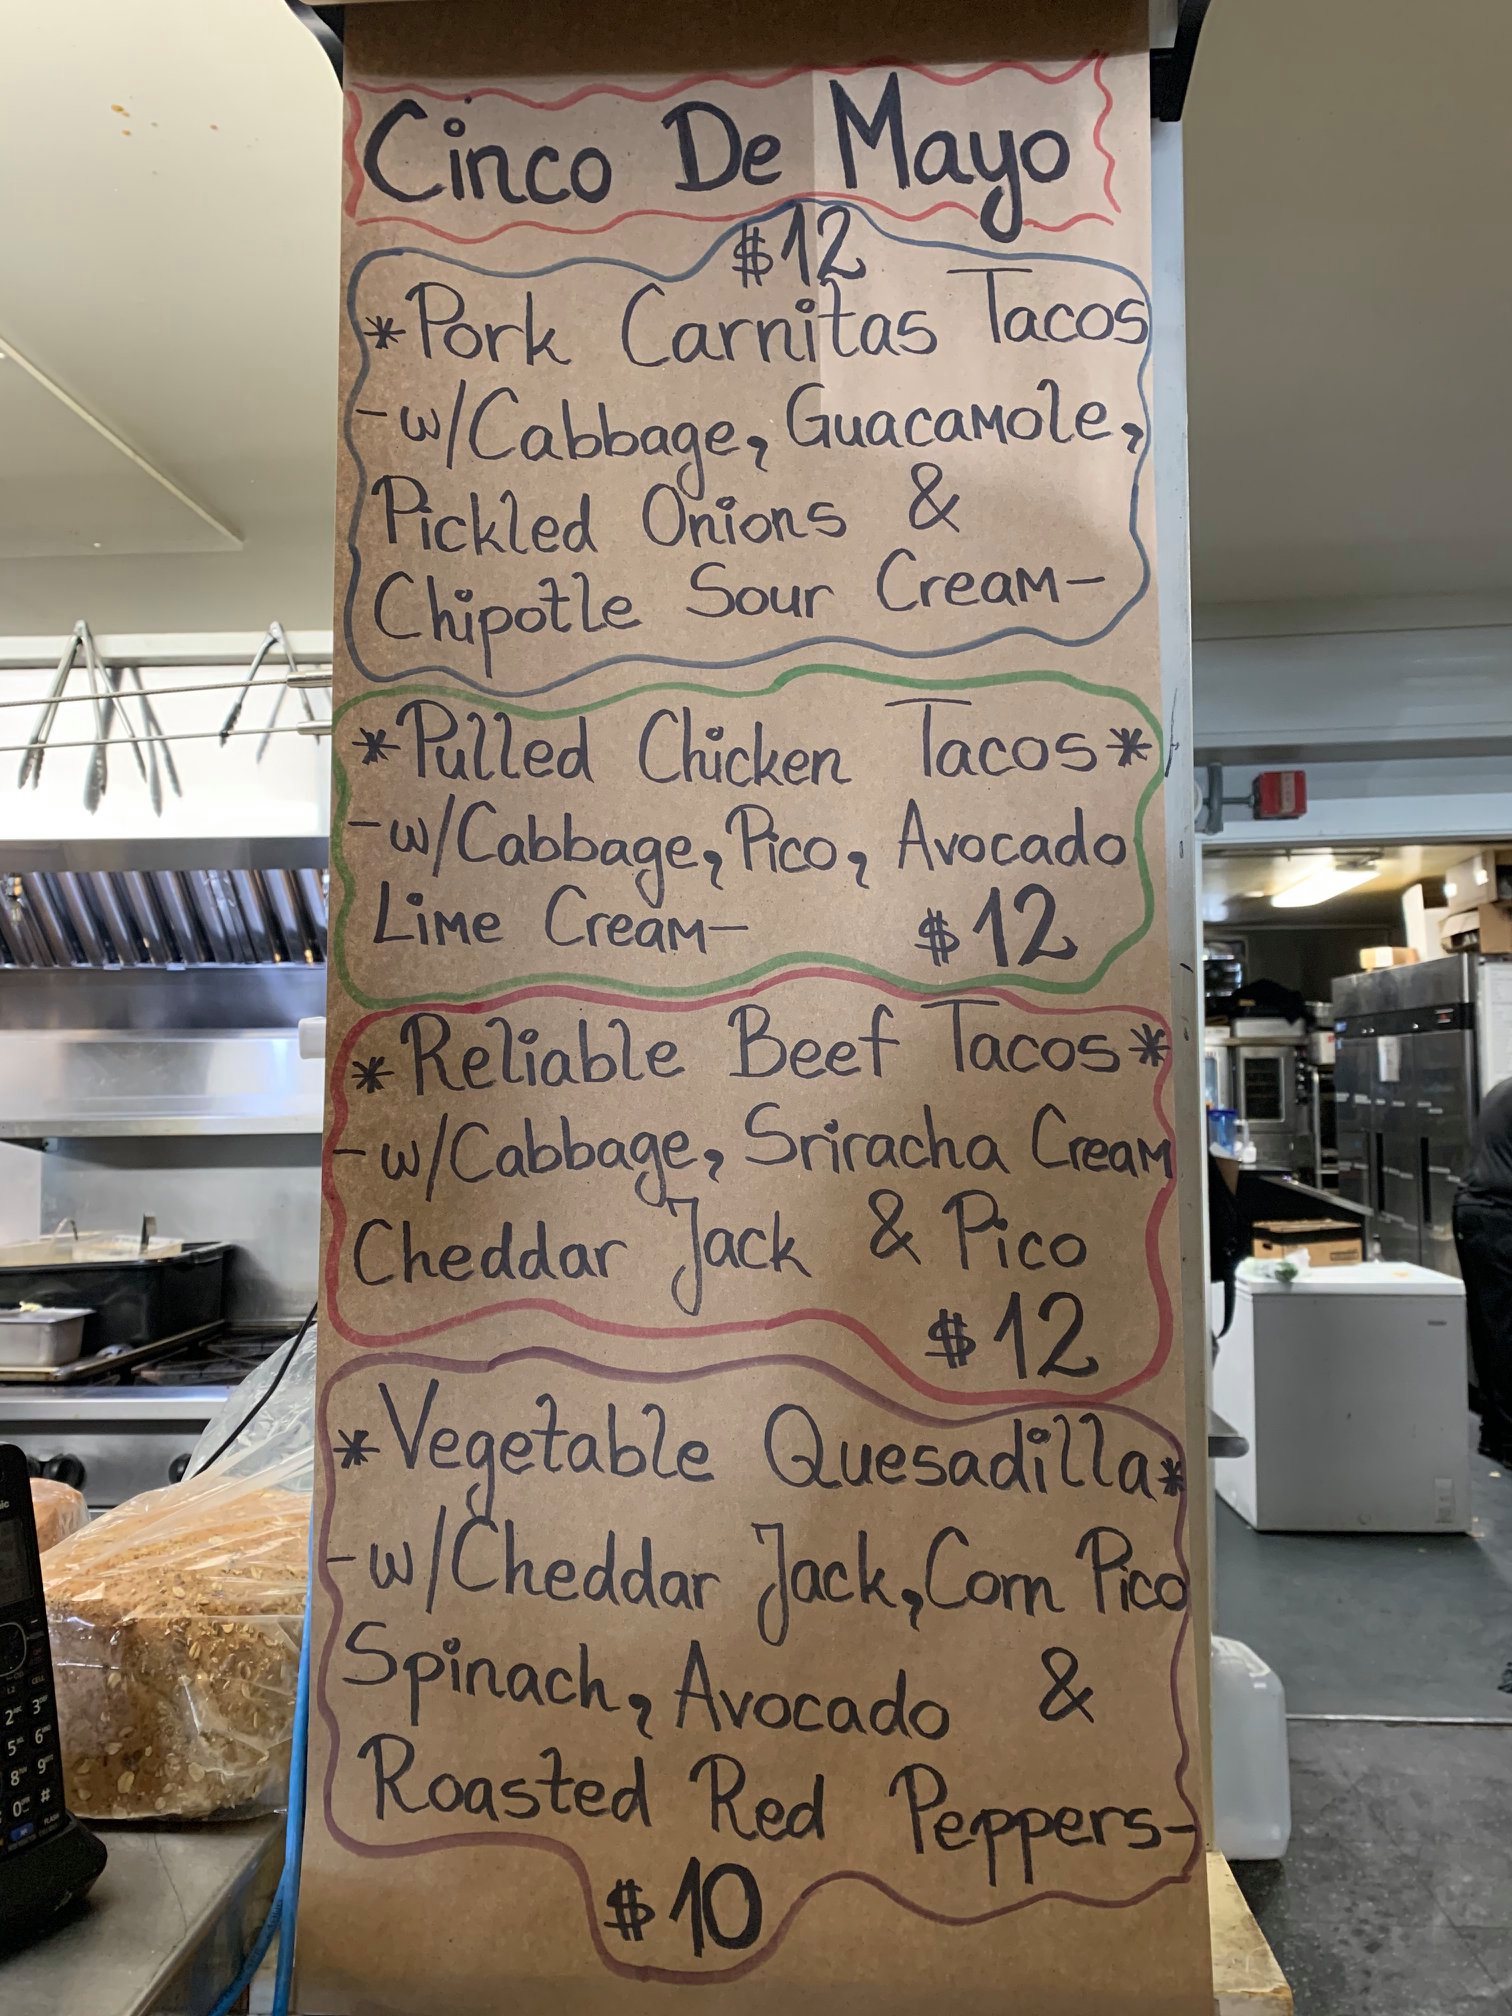 Cinco De Mayo
$12
*Pork Carnitas Tacos
-w/Cabbage, Guacamole,
Pickled Onions &
Chipotle Sour Cream-
*Pulled Chicken Tacos*
-w/Cabbage, Pico, Avocado
Lime Cream- $12
*Reliable Beef Tacos*
-w/Cabbage, Sriracha Cream
Cheddar Jack & Pico
$12
*Vegetable Quesadilla*
-w/Cheddar Jack, Corn Pico
Spinach, Avocado &
Roasted Red Peppers-
$10